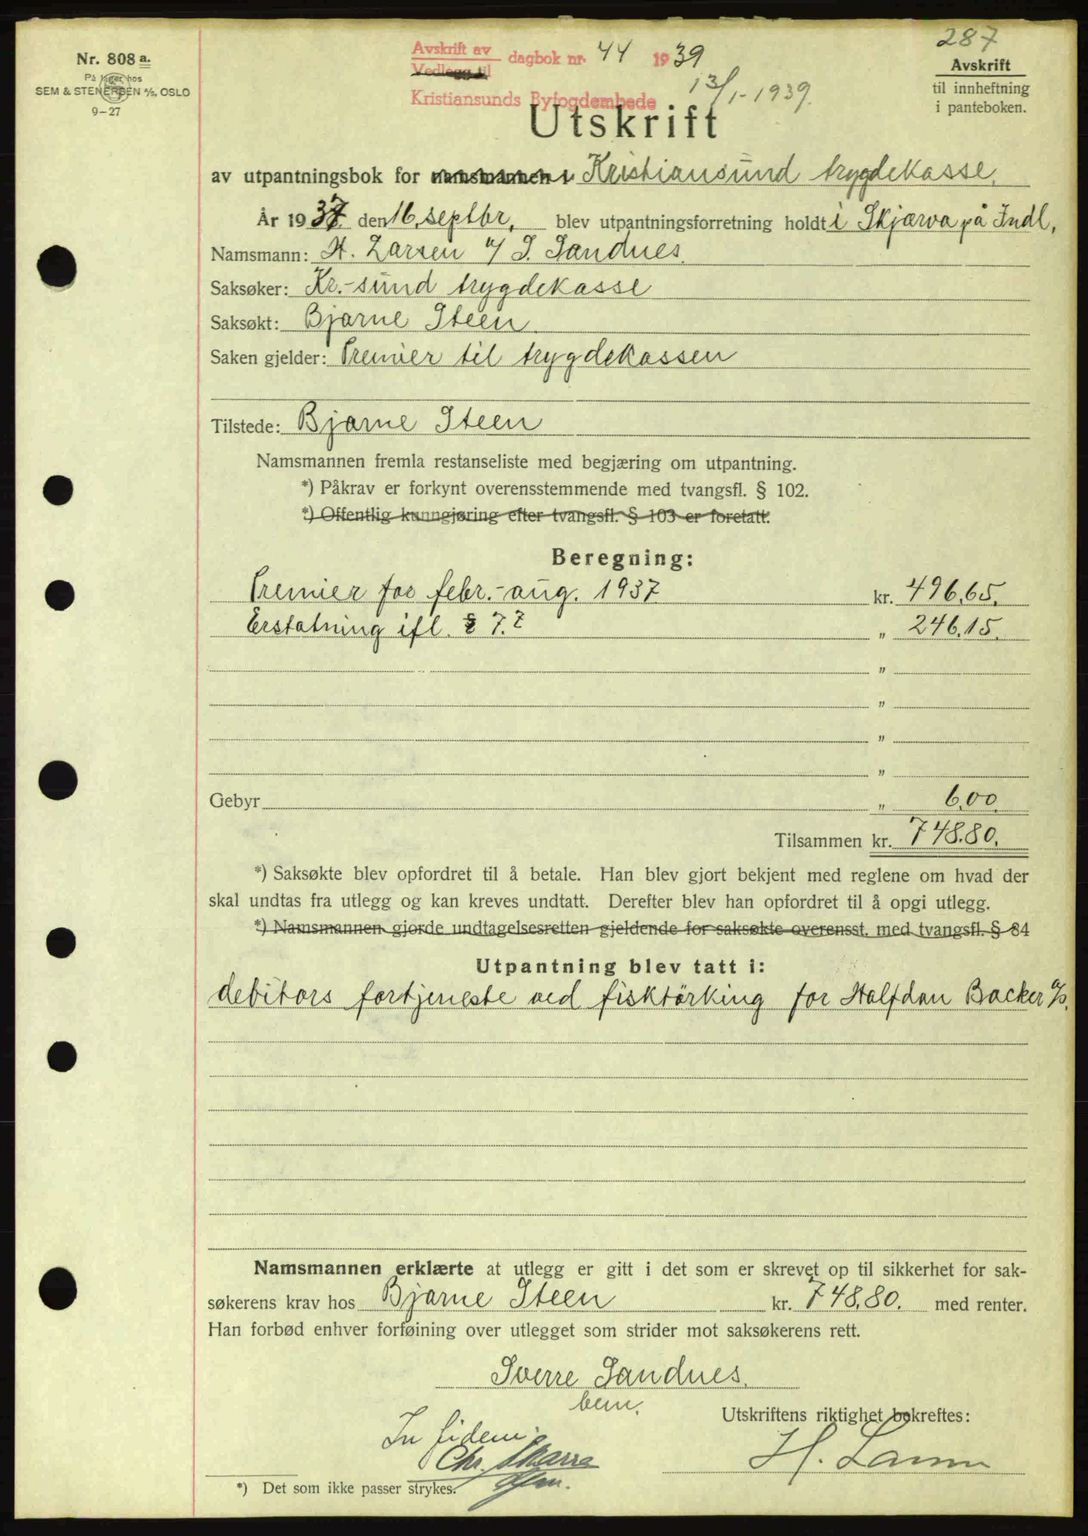 287
Nr. 808 a.
På lager hos
SEM & STENERSEN A/S, OSLO
9-27
Avskrift av
dagbok nr. 44 1939
Vedlegg til
Kristiansunds Byfogdembede 13/1-1939.
Avskrift
til innheftning
i panteboken.
Utskrift
av utpantningsbok for namsmannen i Kristiansund trygdekasse.
År 1937. den 16. septbr, blev utpantningsforretning holdt i Skjærva på Indl,
Namsmann: H. Larsen v/ S. Sandnes.
Saksøker: Kr.-sund trygdekasse
Saksøkt: Bjarne Steen.
Saken gjelder: Premier til trygdekassen
Tilstede: Bjarne Steen
Namsmannen fremla restanseliste med begjæring om utpantning.
*) Påkrav er forkynt overensstemmende med tvangsfl. § 102.
*) Offentlig kunngjøring efter tvangsfl. § 103 er foretatt.
Beregning:
Premier for febr.-aug. 1937 kr. 496,65.
Erstatning ifl. § 7.7 „ 246,15.
„
„
„
„
Gebyr „ 6,00.
Tilsammen kr. 748.80.
*) Saksøkte blev opfordret til å betale. Han blev gjort bekjent med reglene om hvad der
skal undtas fra utlegg og kan kreves undtatt. Derefter blev han opfordret til å opgi utlegg.
*) Namsmannen gjorde undtagelsesretten gjeldende for saksøkte overensst. med tvangsfl. § 84
Utpantning blev tatt i:
debitors fortjeneste ved fisktörking for Halfdan Backer a/s.
Namsmannen erklærte at utlegg er gitt i det som er skrevet op til sikkerhet for sak-
søkerens krav hos Bjarne Steen kr. 748,80. med renter.
Han forbød enhver forføining over utlegget som strider mot saksøkerens rett.
Sverre Sandnes.
bem.
Utskriftens riktighet bekreftes:
In fidem:
Chr.
H. Larsen
*) Det som ikke passer strykes.